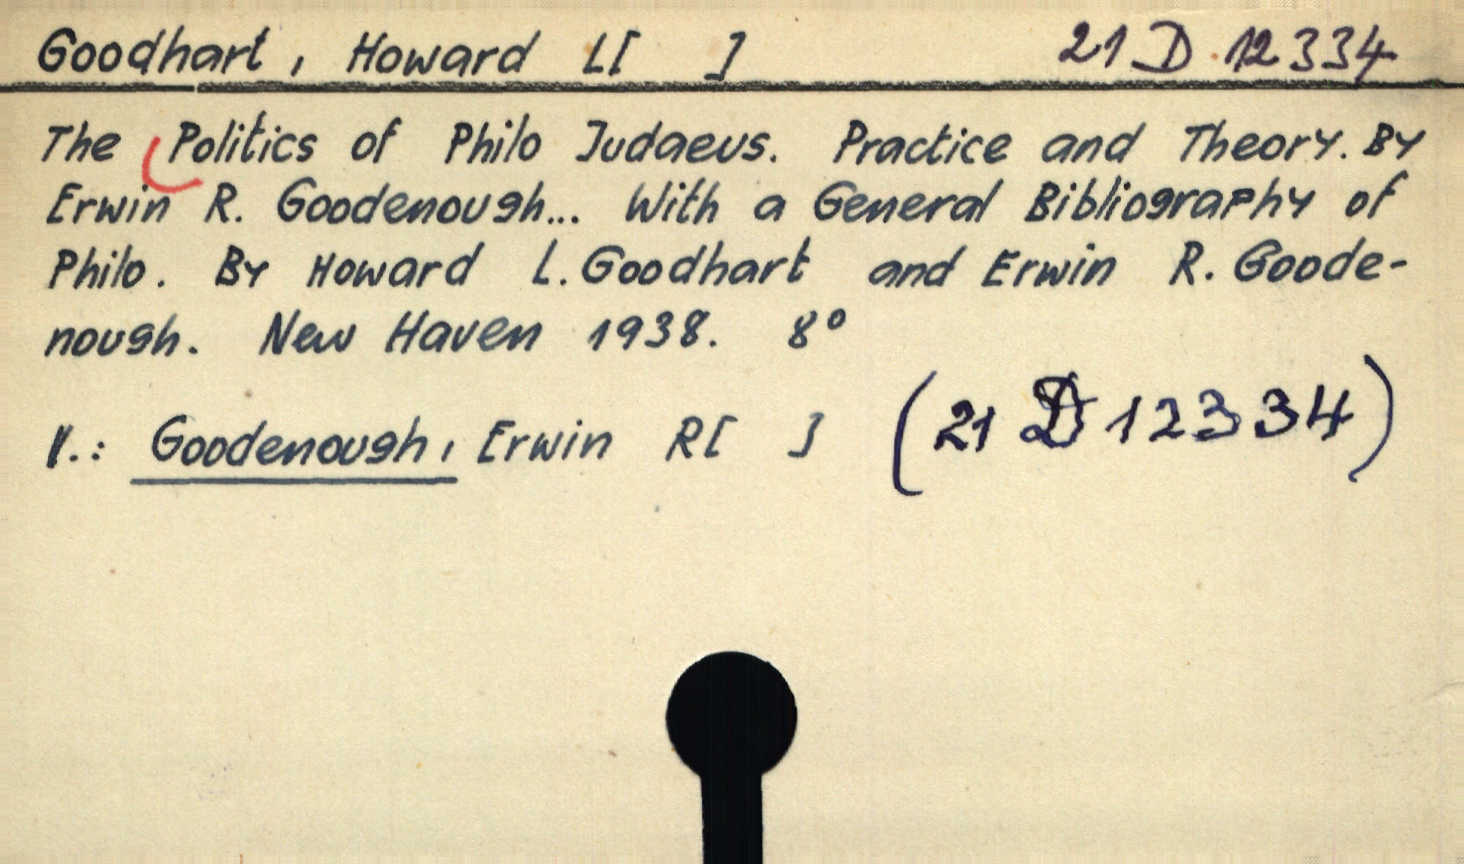 Goodhart, Howard L[ ] 21 D 12334
The Politics of Philo Judaeus. Practice and Theory. By
Erwin R. Goodenough... With a General Bibliography of
Philo. By Howard L. Goodhart and Erwin R. Goode-
nough. New Haven 1938. 8°
V.: Goodenough, Erwin R[ ] (21 D 12334)